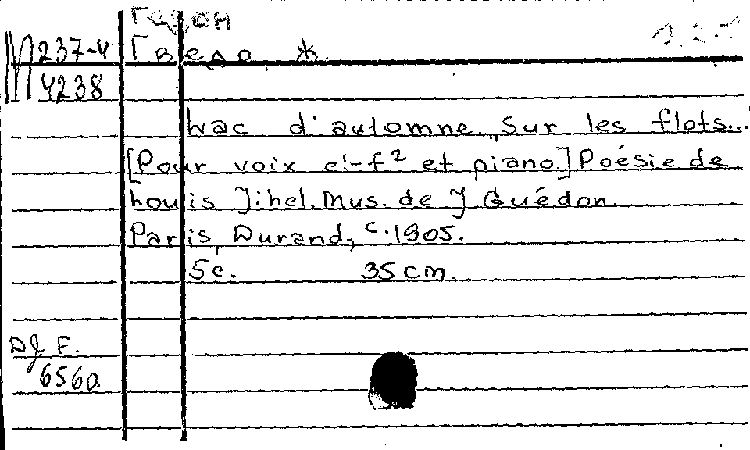 М 237-4 Гведо *
4238
Lac d'automne, Sur les flots..
[Pour voix e¹-f² et piano.] Poésie de
Louis Jihel. Mus. de J Guédon
Paris, Durand, c.1905.
5c. 35 cm.
D & F.
6560